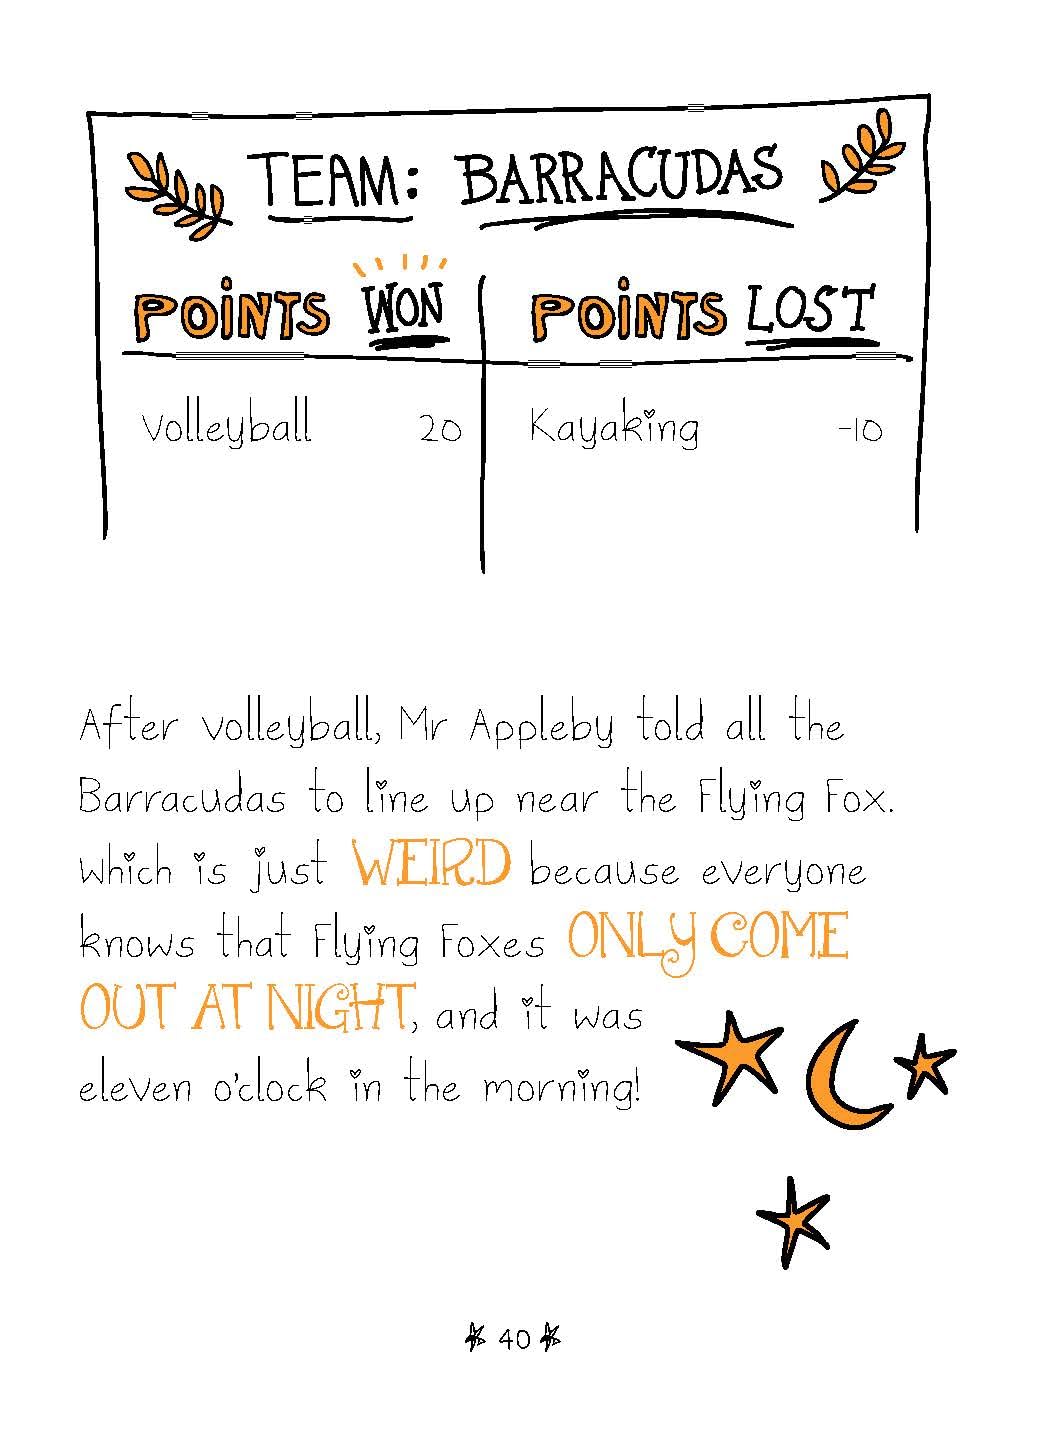 TEAM: BARRACUDAS
POINTS WON POINTS LOST
Volleyball 20 Kayaking -10
After volleyball, Mr Appleby told all the
Barracudas to line up near the Flying Fox.
Which is just WEIRD because everyone
knows that Flying Foxes ONLY COME
OUT AT NIGHT, and it was
eleven o'clock in the morning!
40